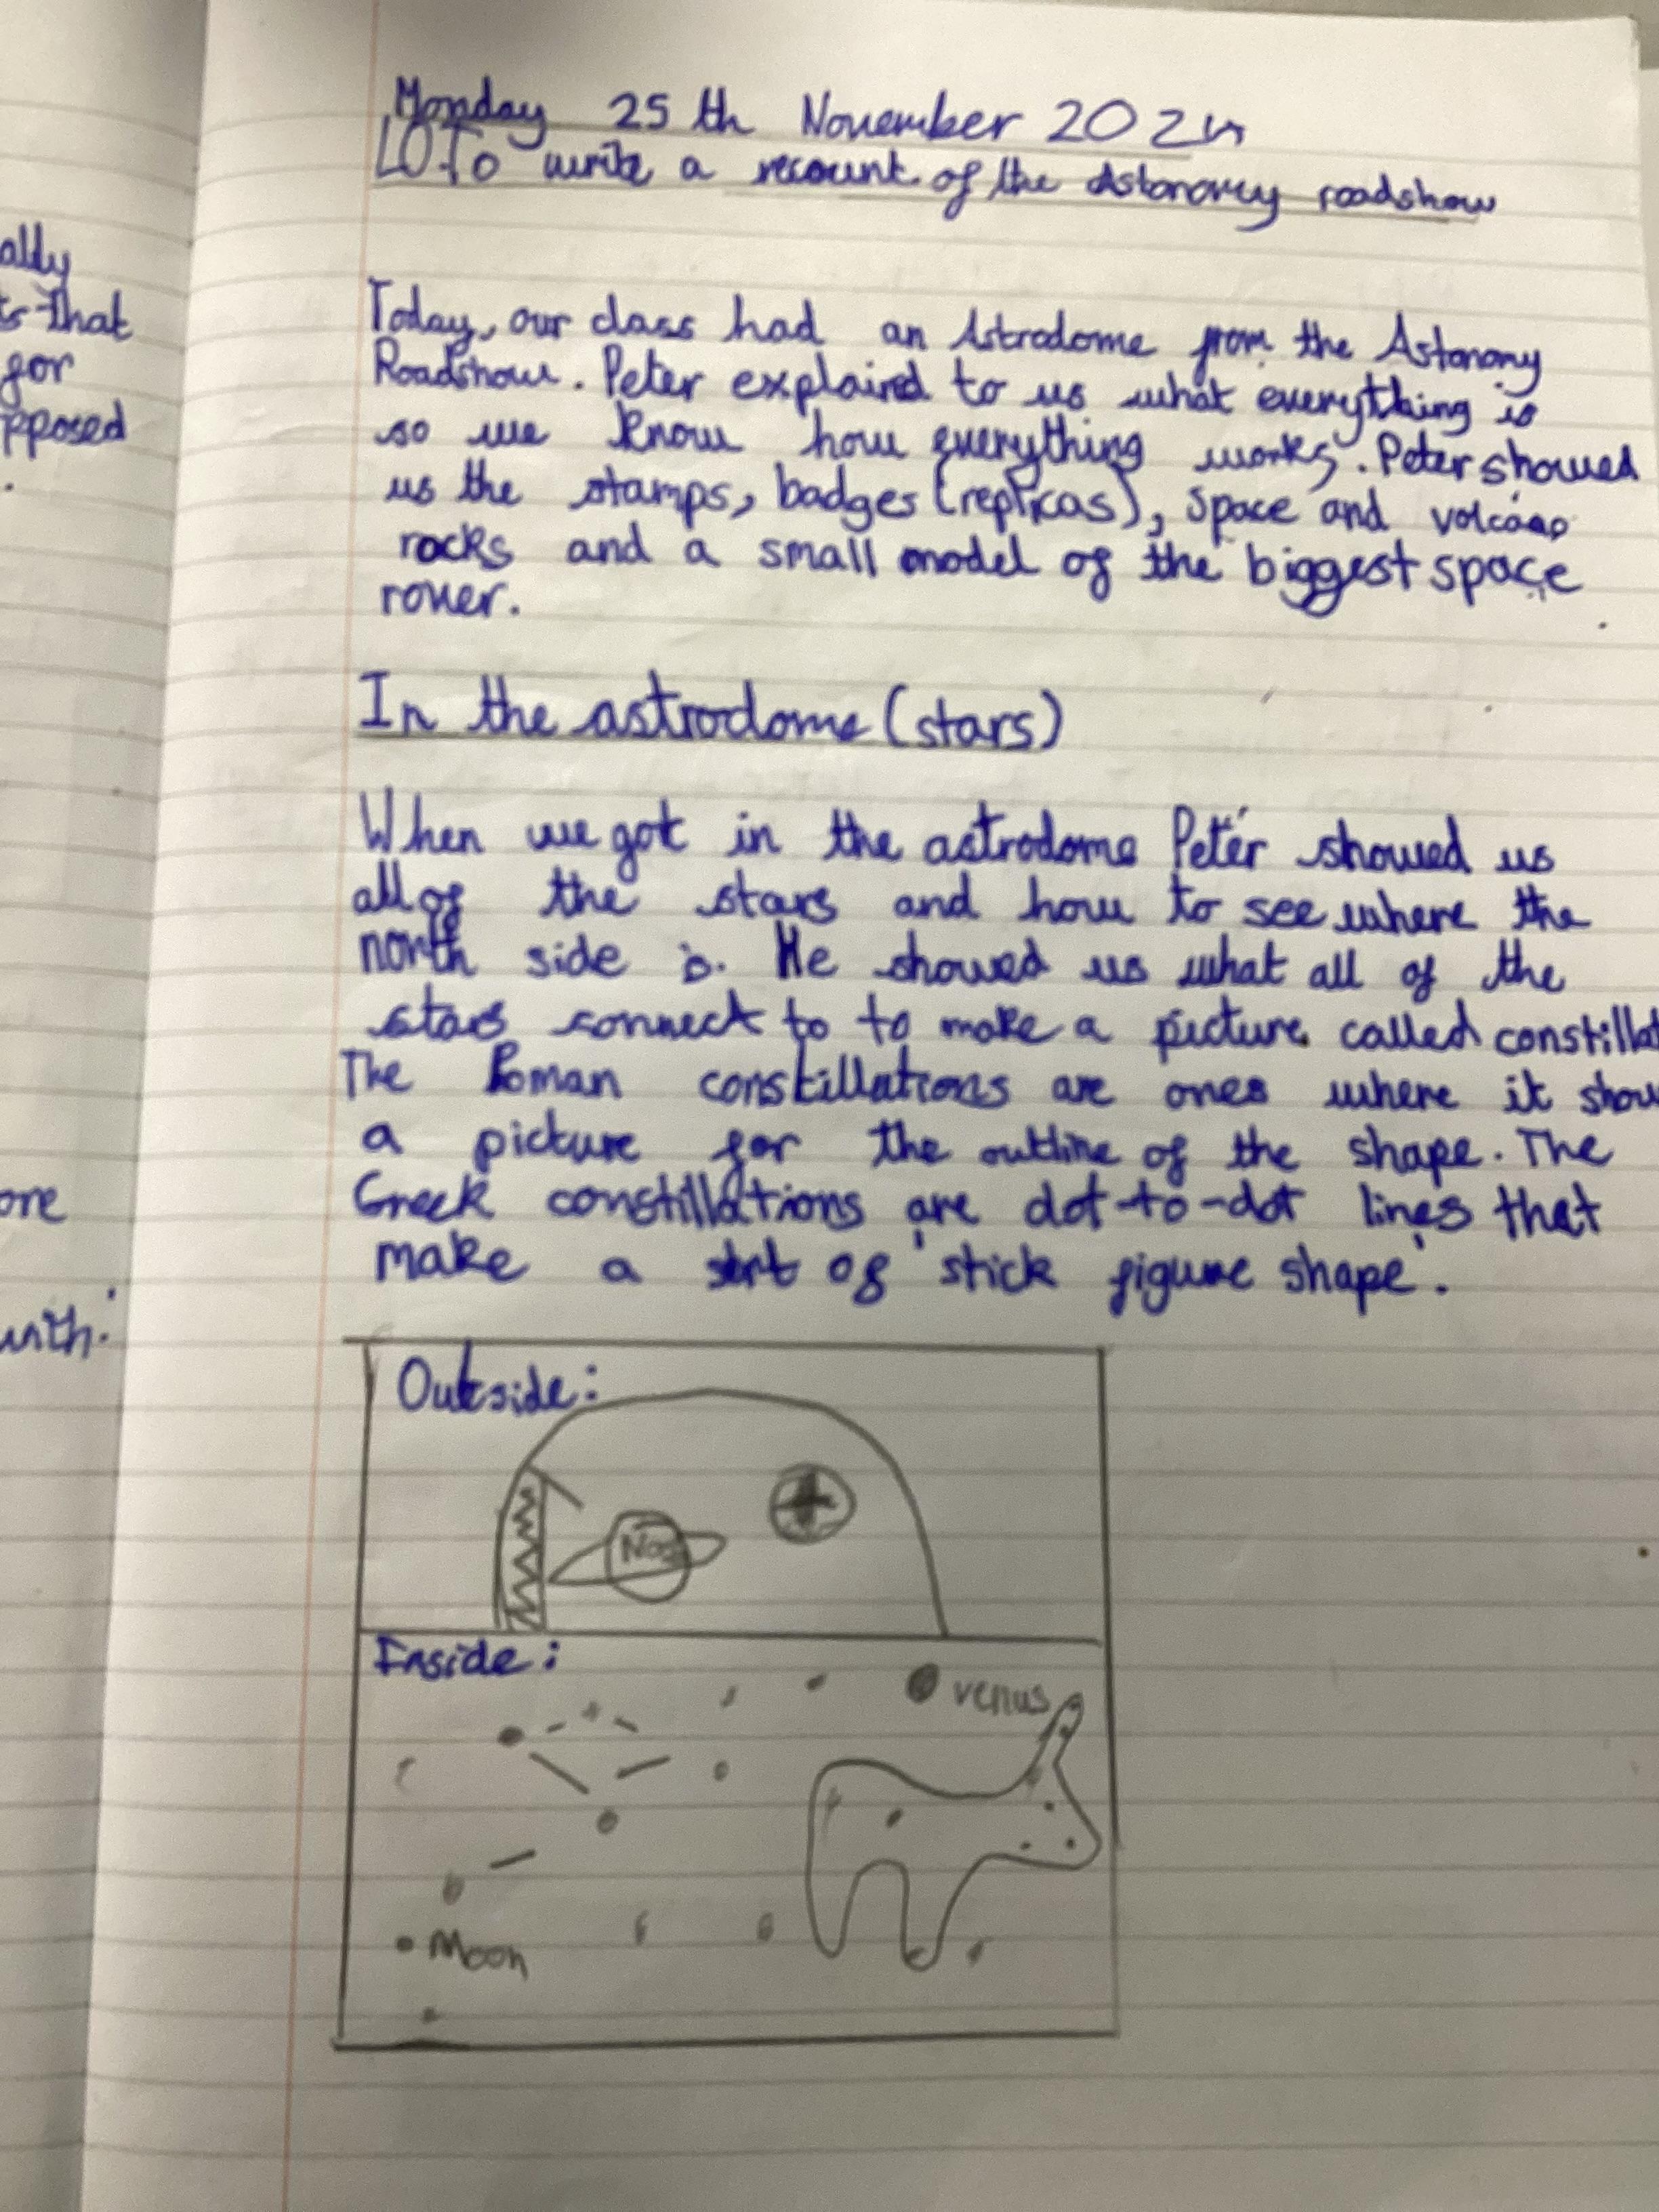 Monday 25 th November 2024
LO To write a recount of the Astonomy roadshow
Today, our class had an Astrodome from the Astonomy
Roadshow. Peter explained to us what everything is
so we know how everything works. Peter showed
us the stamps, badges (replicas), space and volcano
rocks and a small model of the biggest space
rover.
In the astrodome (stars)
When we got in the astrodome Peter showed us
all of the stars and how to see where the
north side is. He showed us what all of the
stars connect to to make a picture called constillat
The Roman constillations are ones where it show
a picture for the outline of the shape. The
Greek constillations are dot-to-dot lines that
make a sort of 'stick figure shape'.
Outside:
Inside:
venus
Moon
ally
that
for
pposed
ore
with.